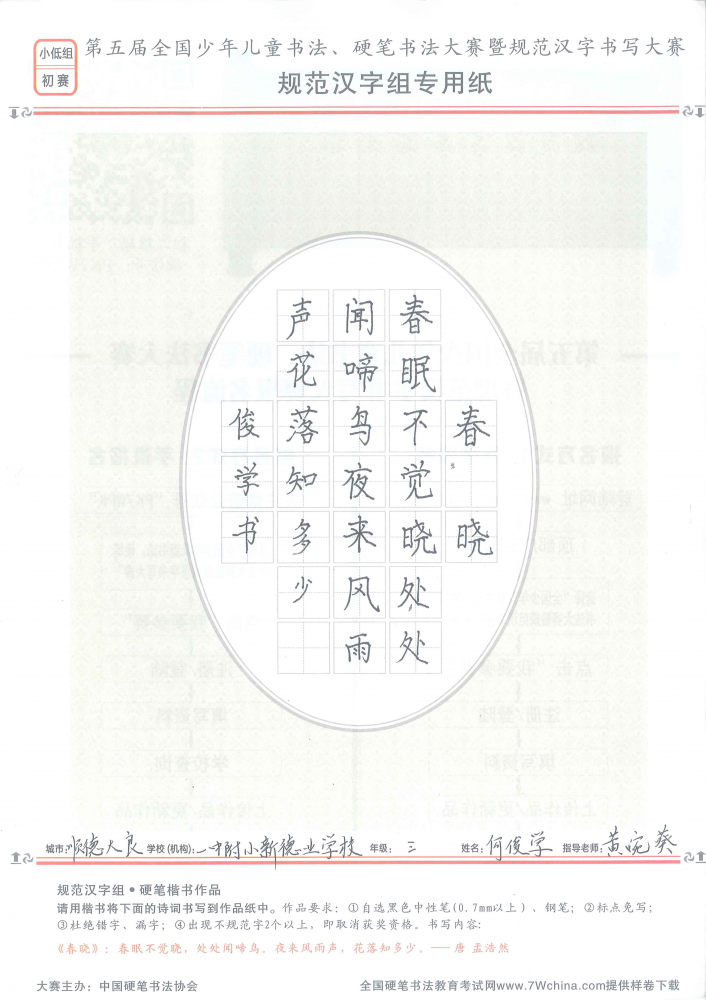 小低组
初赛
第五届全国少年儿童书法、硬笔书法大赛暨规范汉字书写大赛
规范汉字组专用纸
春晓
春眠不觉晓处处
闻啼鸟夜来风雨
声花落知多少
俊学书
城市:顺德大良 学校(机构):一中附小新德业学校 年级:三 姓名:何俊学 指导老师:黄婉葵
规范汉字组•硬笔楷书作品
请用楷书将下面的诗词书写到作品纸中。作品要求:①自选黑色中性笔(0.7mm以上)、钢笔;②标点免写;
③杜绝错字、漏字;④出现不规范字2个以上,即取消获奖资格。书写内容:
《春晓》:春眠不觉晓,处处闻啼鸟。夜来风雨声,花落知多少。——唐 孟浩然
大赛主办:中国硬笔书法协会
全国硬笔书法教育考试网www.7Wchina.com提供样卷下载